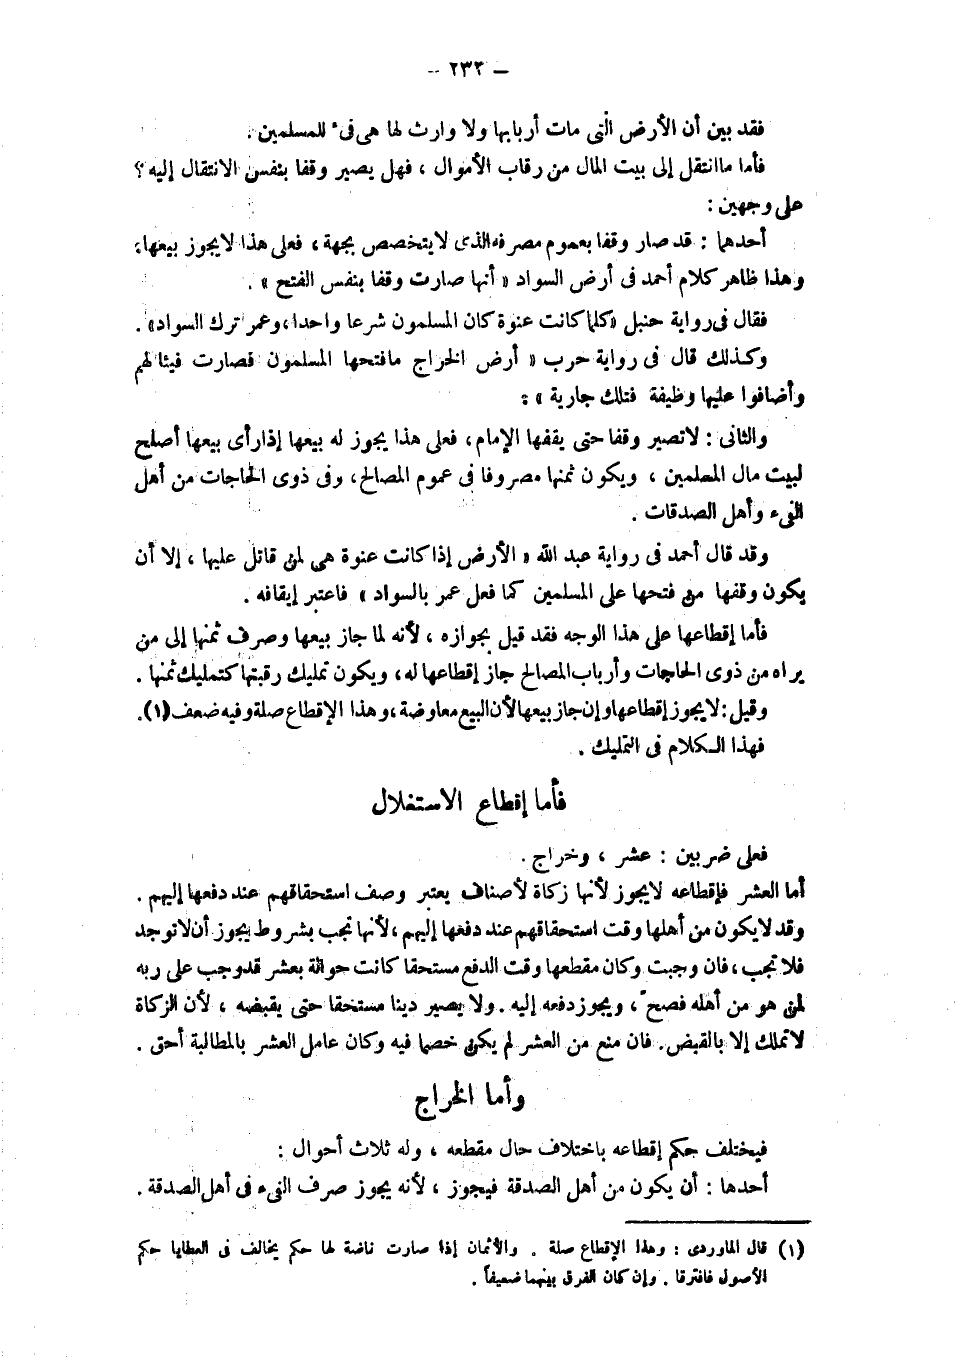 — ٢٣٢ —
فقد بين أن الأرض الَّتى مات أربابها ولا وارث لها هى فىء للمسلمين .
فأما ماانتقل إلى بيت المال من رقاب الأموال ، فهل يصير وقفا بنفس الانتقال إليه ؟
على وجهين :
أحدهما : قد صار وقفا بعموم مصرفه الذى لايتخصص بجهة ، فعلى هذا لايجوز بيعها ،
وهذا ظاهر كلام أحمد فى أرض السواد « أنها صارت وقفا بنفس الفتح » .
فقال فى رواية حنبل «كلما كانت عنوة كان المسلمون شرعا واحدا ، وعمر ترك السواد» .
وكذلك قال فى رواية حرب « أرض الخراج مافتحها المسلمون فصارت فيئا لهم
وأضافوا عليها وظيفة فتلك جارية » :
والثانى : لاتصير وقفا حتى يقفها الإمام ، فعلى هذا يجوز له بيعها إذا رأى بيعها أصلح
لبيت مال المسلمين ، ويكون ثمنها مصروفا فى عموم المصالح ، وفى ذوى الحاجات من أهل
الفىء وأهل الصدقات .
وقد قال أحمد فى رواية عبد الله « الأرض إذا كانت عنوة هى لمن قاتل عليها ، إلا أن
يكون وقفها من فتحها على المسلمين كما فعل عمر بالسواد » فاعتبر إيقافه .
فأما إقطاعها على هذا الوجه فقد قيل بجوازه ، لأنه لما جاز بيعها وصرف ثمنها إلى من
يراه من ذوى الحاجات وأرباب المصالح جاز إقطاعها له ، ويكون تمليك رقبتها كتمليك ثمنها .
وقيل : لايجوز إقطاعها وإن جاز بيعها لأن البيع معاوضة ، وهذا الإقطاع صلة وفيه ضعف (١) .
فهذا الكلام فى التمليك .
فأما إقطاع الاستغلال
فعلى ضربين : عشر ، وخراج .
أما العشر فإقطاعه لايجوز لأنها زكاة لأصناف يعتبر وصف استحقاقهم عند دفعها إليهم .
وقد لايكون من أهلها وقت استحقاقهم عند دفعها إليهم ، لأنها تجب بشروط يجوز أن لاتوجد
فلا تجب ، فان وجبت وكان مقطعها وقت الدفع مستحقا كانت حوالة بعشر قد وجب على ربه
لمن هو من أهله فصح ، ويجوز دفعه إليه . ولا يصير دينا مستحقا حتى يقبضه ، لأن الزكاة
لاتملك إلا بالقبض . فان منع من العشر لم يكن خصما فيه وكان عامل العشر بالمطالبة أحق .
وأما الخراج
فيختلف حكم إقطاعه باختلاف حال مقطعه ، وله ثلاث أحوال :
أحدها : أن يكون من أهل الصدقة فيجوز ، لأنه يجوز صرف الفىء فى أهل الصدقة .
(١) قال الماوردى : وهذا الإقطاع صلة . والأثمان إذا صارت ناضة لها حكم يخالف فى العطايا حكم
الأصول فافترقا . وإن كان الفرق بينهما ضعيفاً .